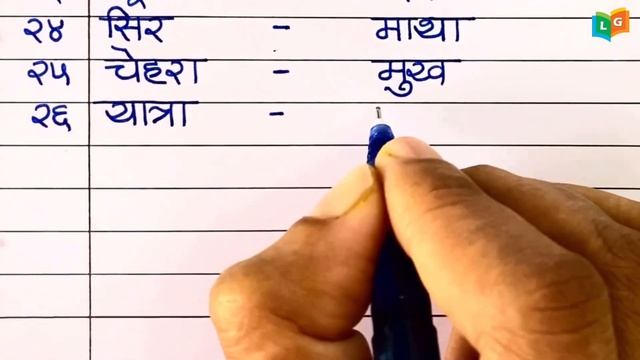 २४ सिर - माथा
२५ चेहरा - मुख
२६ यात्रा -
LG